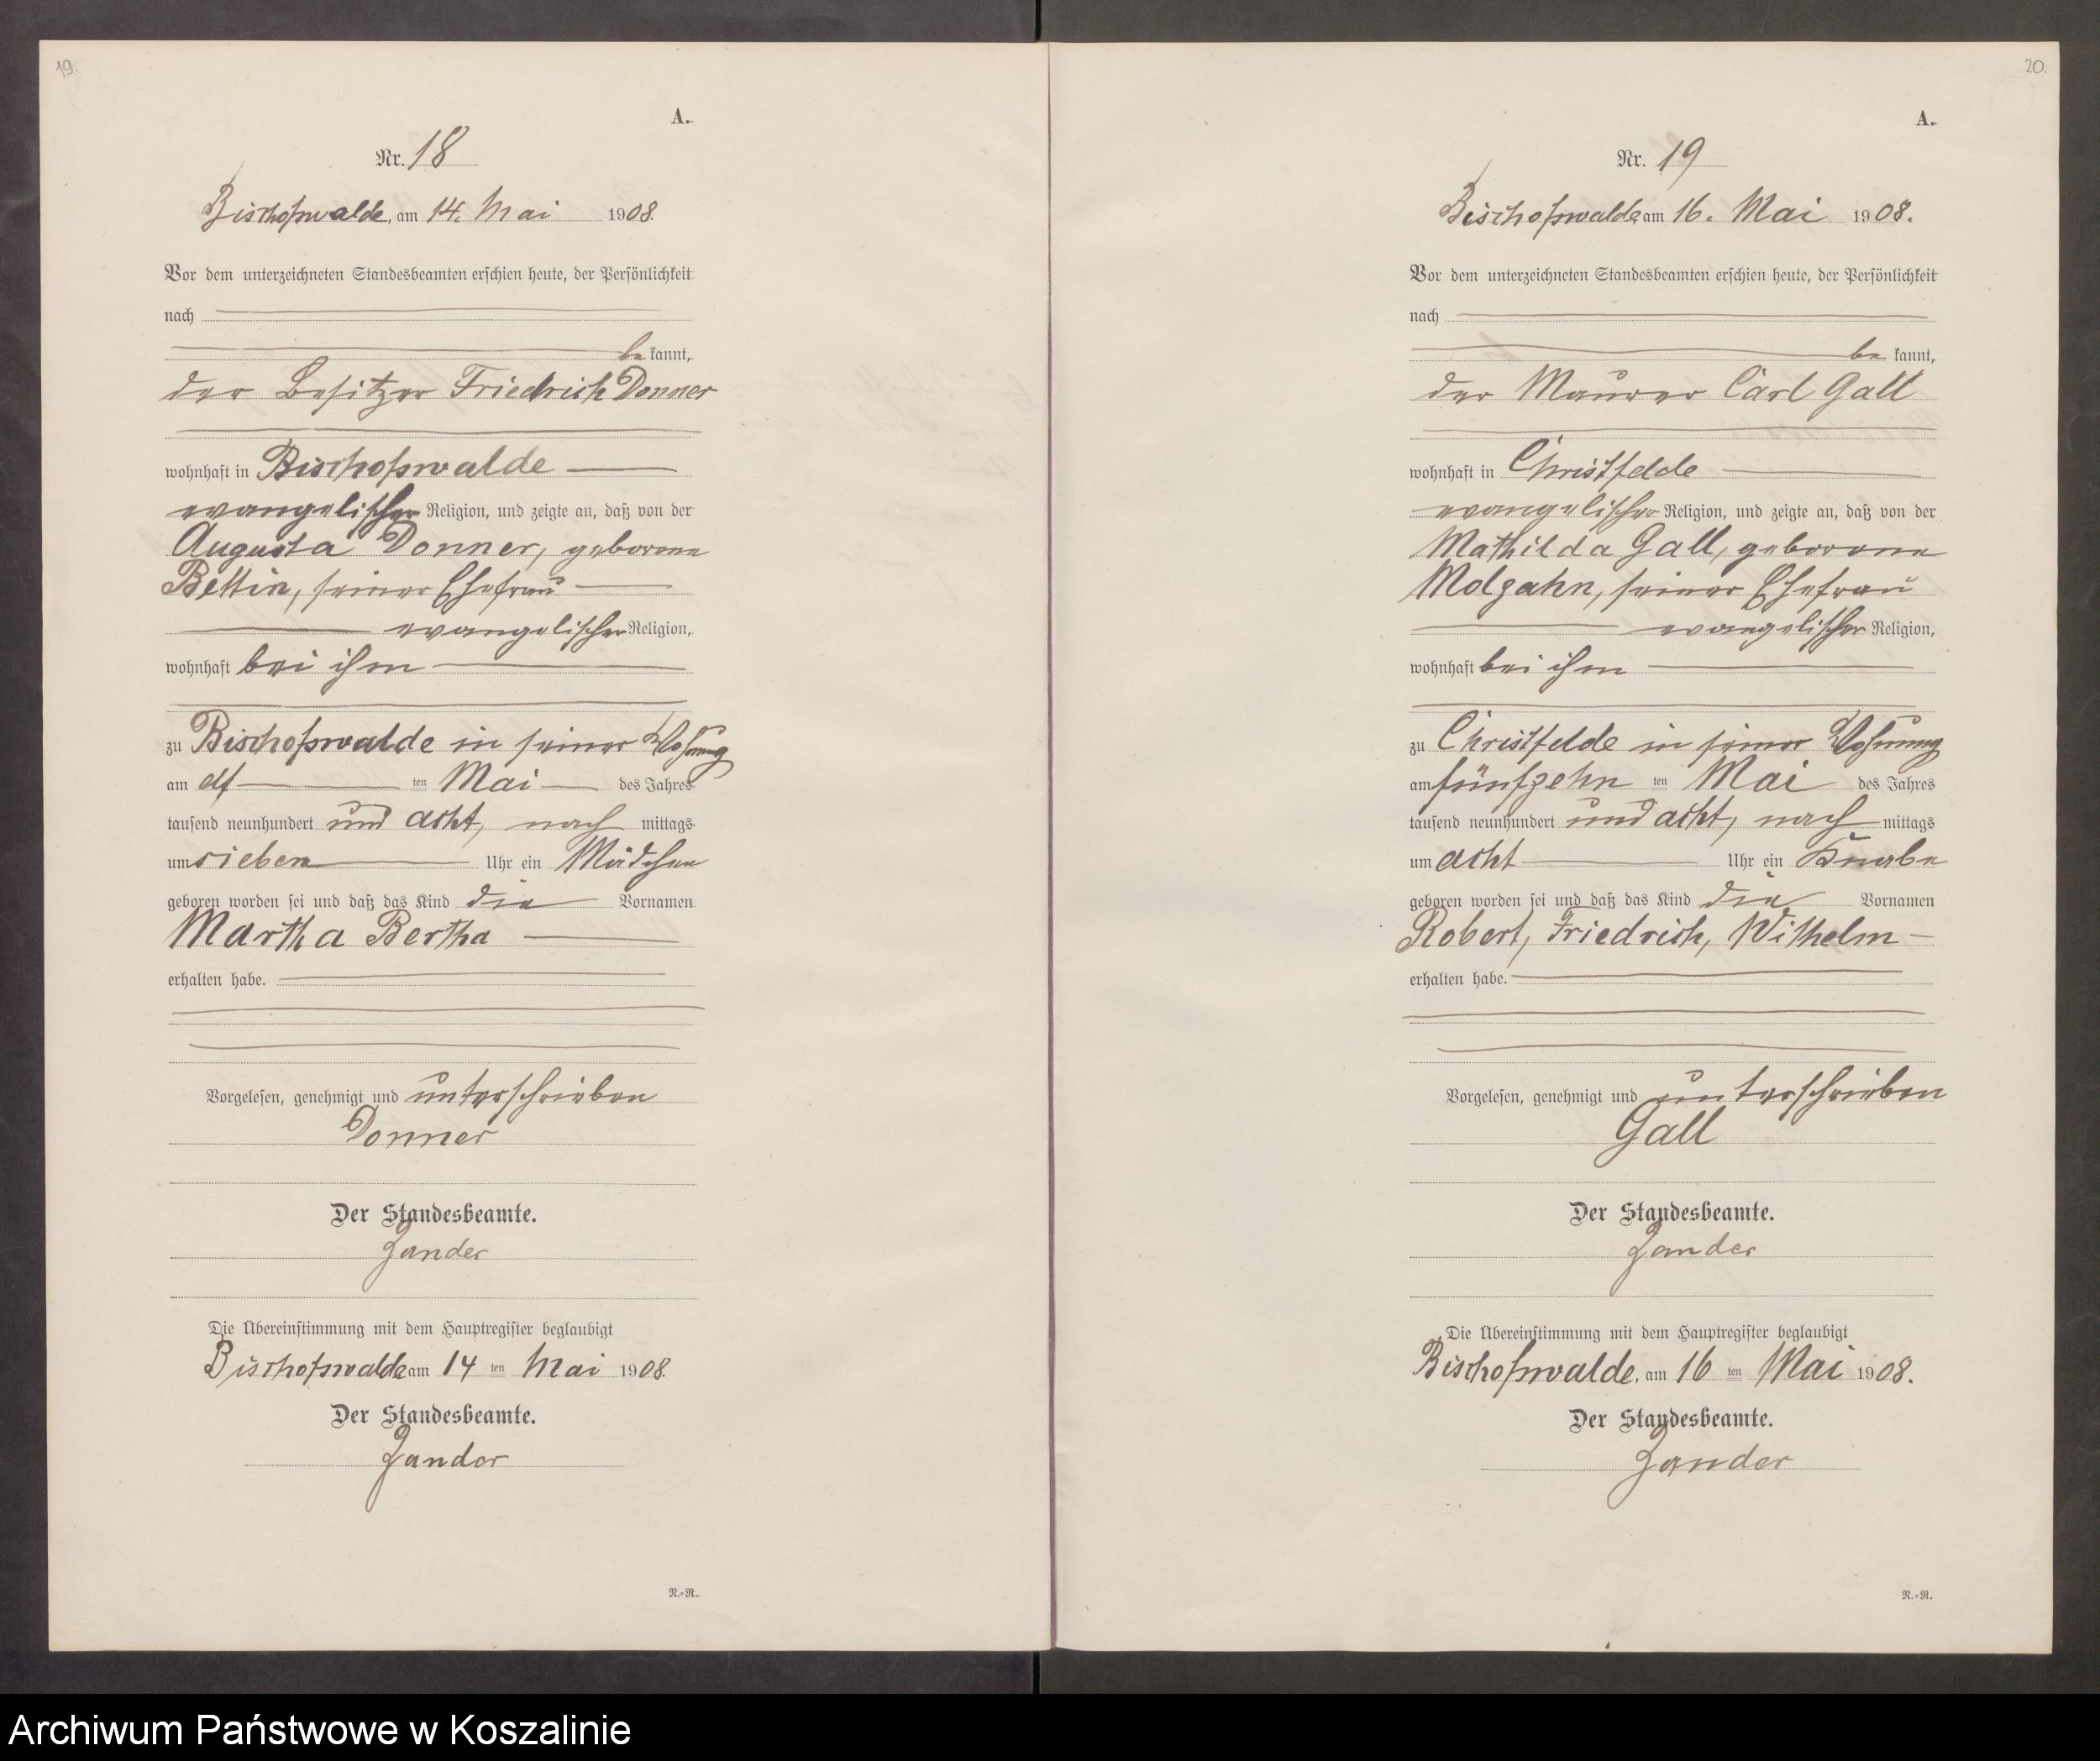 19.
A.
Nr. 18
Bischofswalde, am 14. Mai 1908.
Vor dem unterzeichneten Standesbeamten erschien heute, der Persönlichkeit
nach
be kannt,
der Besitzer Friedrich Donner
wohnhaft in Bischofswalde
evangelischer Religion, und zeigte an, daß von der
Augusta Donner, geborene
Bettin, seiner Ehefrau
evangelischer Religion,
wohnhaft bei ihm
zu Bischofswalde in seiner Wohnung
am elf ten Mai des Jahres
tausend neunhundert und acht, nach mittags
um sieben Uhr ein Mädchen
geboren worden sei und daß das Kind die Vornamen
Martha Bertha
erhalten habe.
Vorgelesen, genehmigt und unterschrieben
Donner
Der Standesbeamte.
Zander
Die Übereinstimmung mit dem Hauptregister beglaubigt
Bischofswalde am 14 ten Mai 1908.
Der Standesbeamte.
Zander
R.=R.
20.
A.
Nr. 19
Bischofswalde am 16. Mai 1908.
Vor dem unterzeichneten Standesbeamten erschien heute, der Persönlichkeit
nach
be kannt,
der Maurer Carl Gall
wohnhaft in Christfelde
evangelischer Religion, und zeigte an, daß von der
Mathilda Gall, geborene
Molzahn, seiner Ehefrau
evangelischer Religion,
wohnhaft bei ihm
zu Christfelde in seiner Wohnung
am fünfzehn ten Mai des Jahres
tausend neunhundert und acht, nach mittags
um acht Uhr ein Knabe
geboren worden sei und daß das Kind die Vornamen
Robert, Friedrich, Wilhelm
erhalten habe.
Vorgelesen, genehmigt und unterschrieben
Gall
Der Standesbeamte.
Zander
Die Übereinstimmung mit dem Hauptregister beglaubigt
Bischofswalde, am 16 ten Mai 1908.
Der Standesbeamte.
Zander
R.=R.
Archiwum Państwowe w Koszalinie